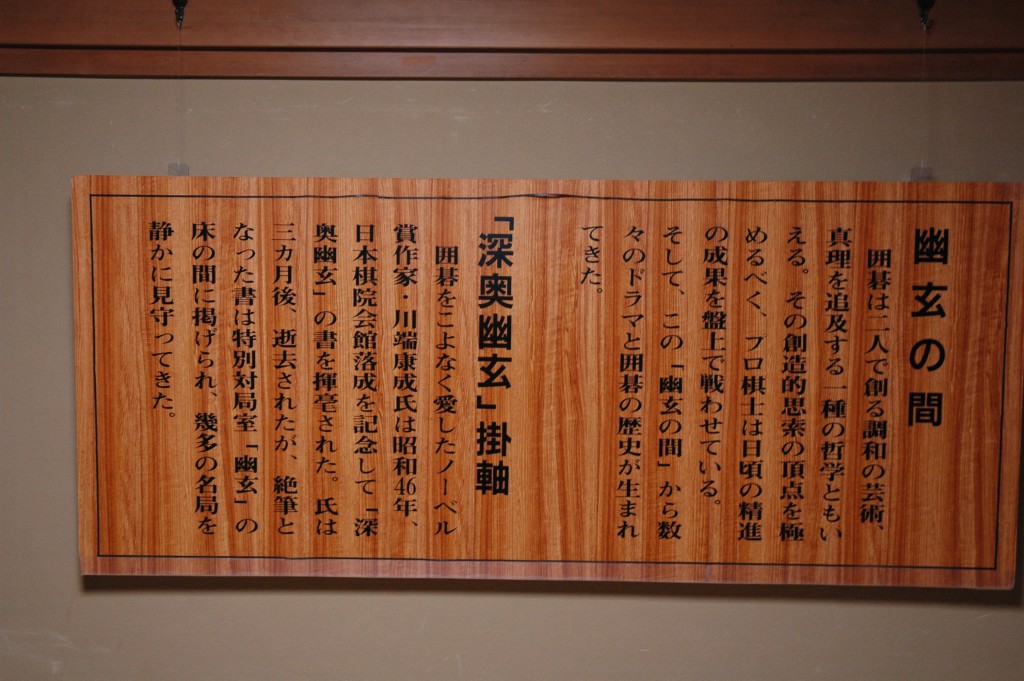 幽玄の間
囲碁は二人で創る調和の芸術、
真理を追及する一種の哲学ともい
える。その創造的思索の頂点を極
めるべく、プロ棋士は日頃の精進
の成果を盤上で戦わせている。
そして、この「幽玄の間」から数
々のドラマと囲碁の歴史が生まれ
てきた。
「深奥幽玄」掛軸
囲碁をこよなく愛したノーベル
賞作家・川端康成氏は昭和46年、
日本棋院会館落成を記念して「深
奥幽玄」の書を揮毫された。氏は
三カ月後、逝去されたが、絶筆と
なった書は特別対局室「幽玄」の
床の間に掲げられ、幾多の名局を
静かに見守ってきた。